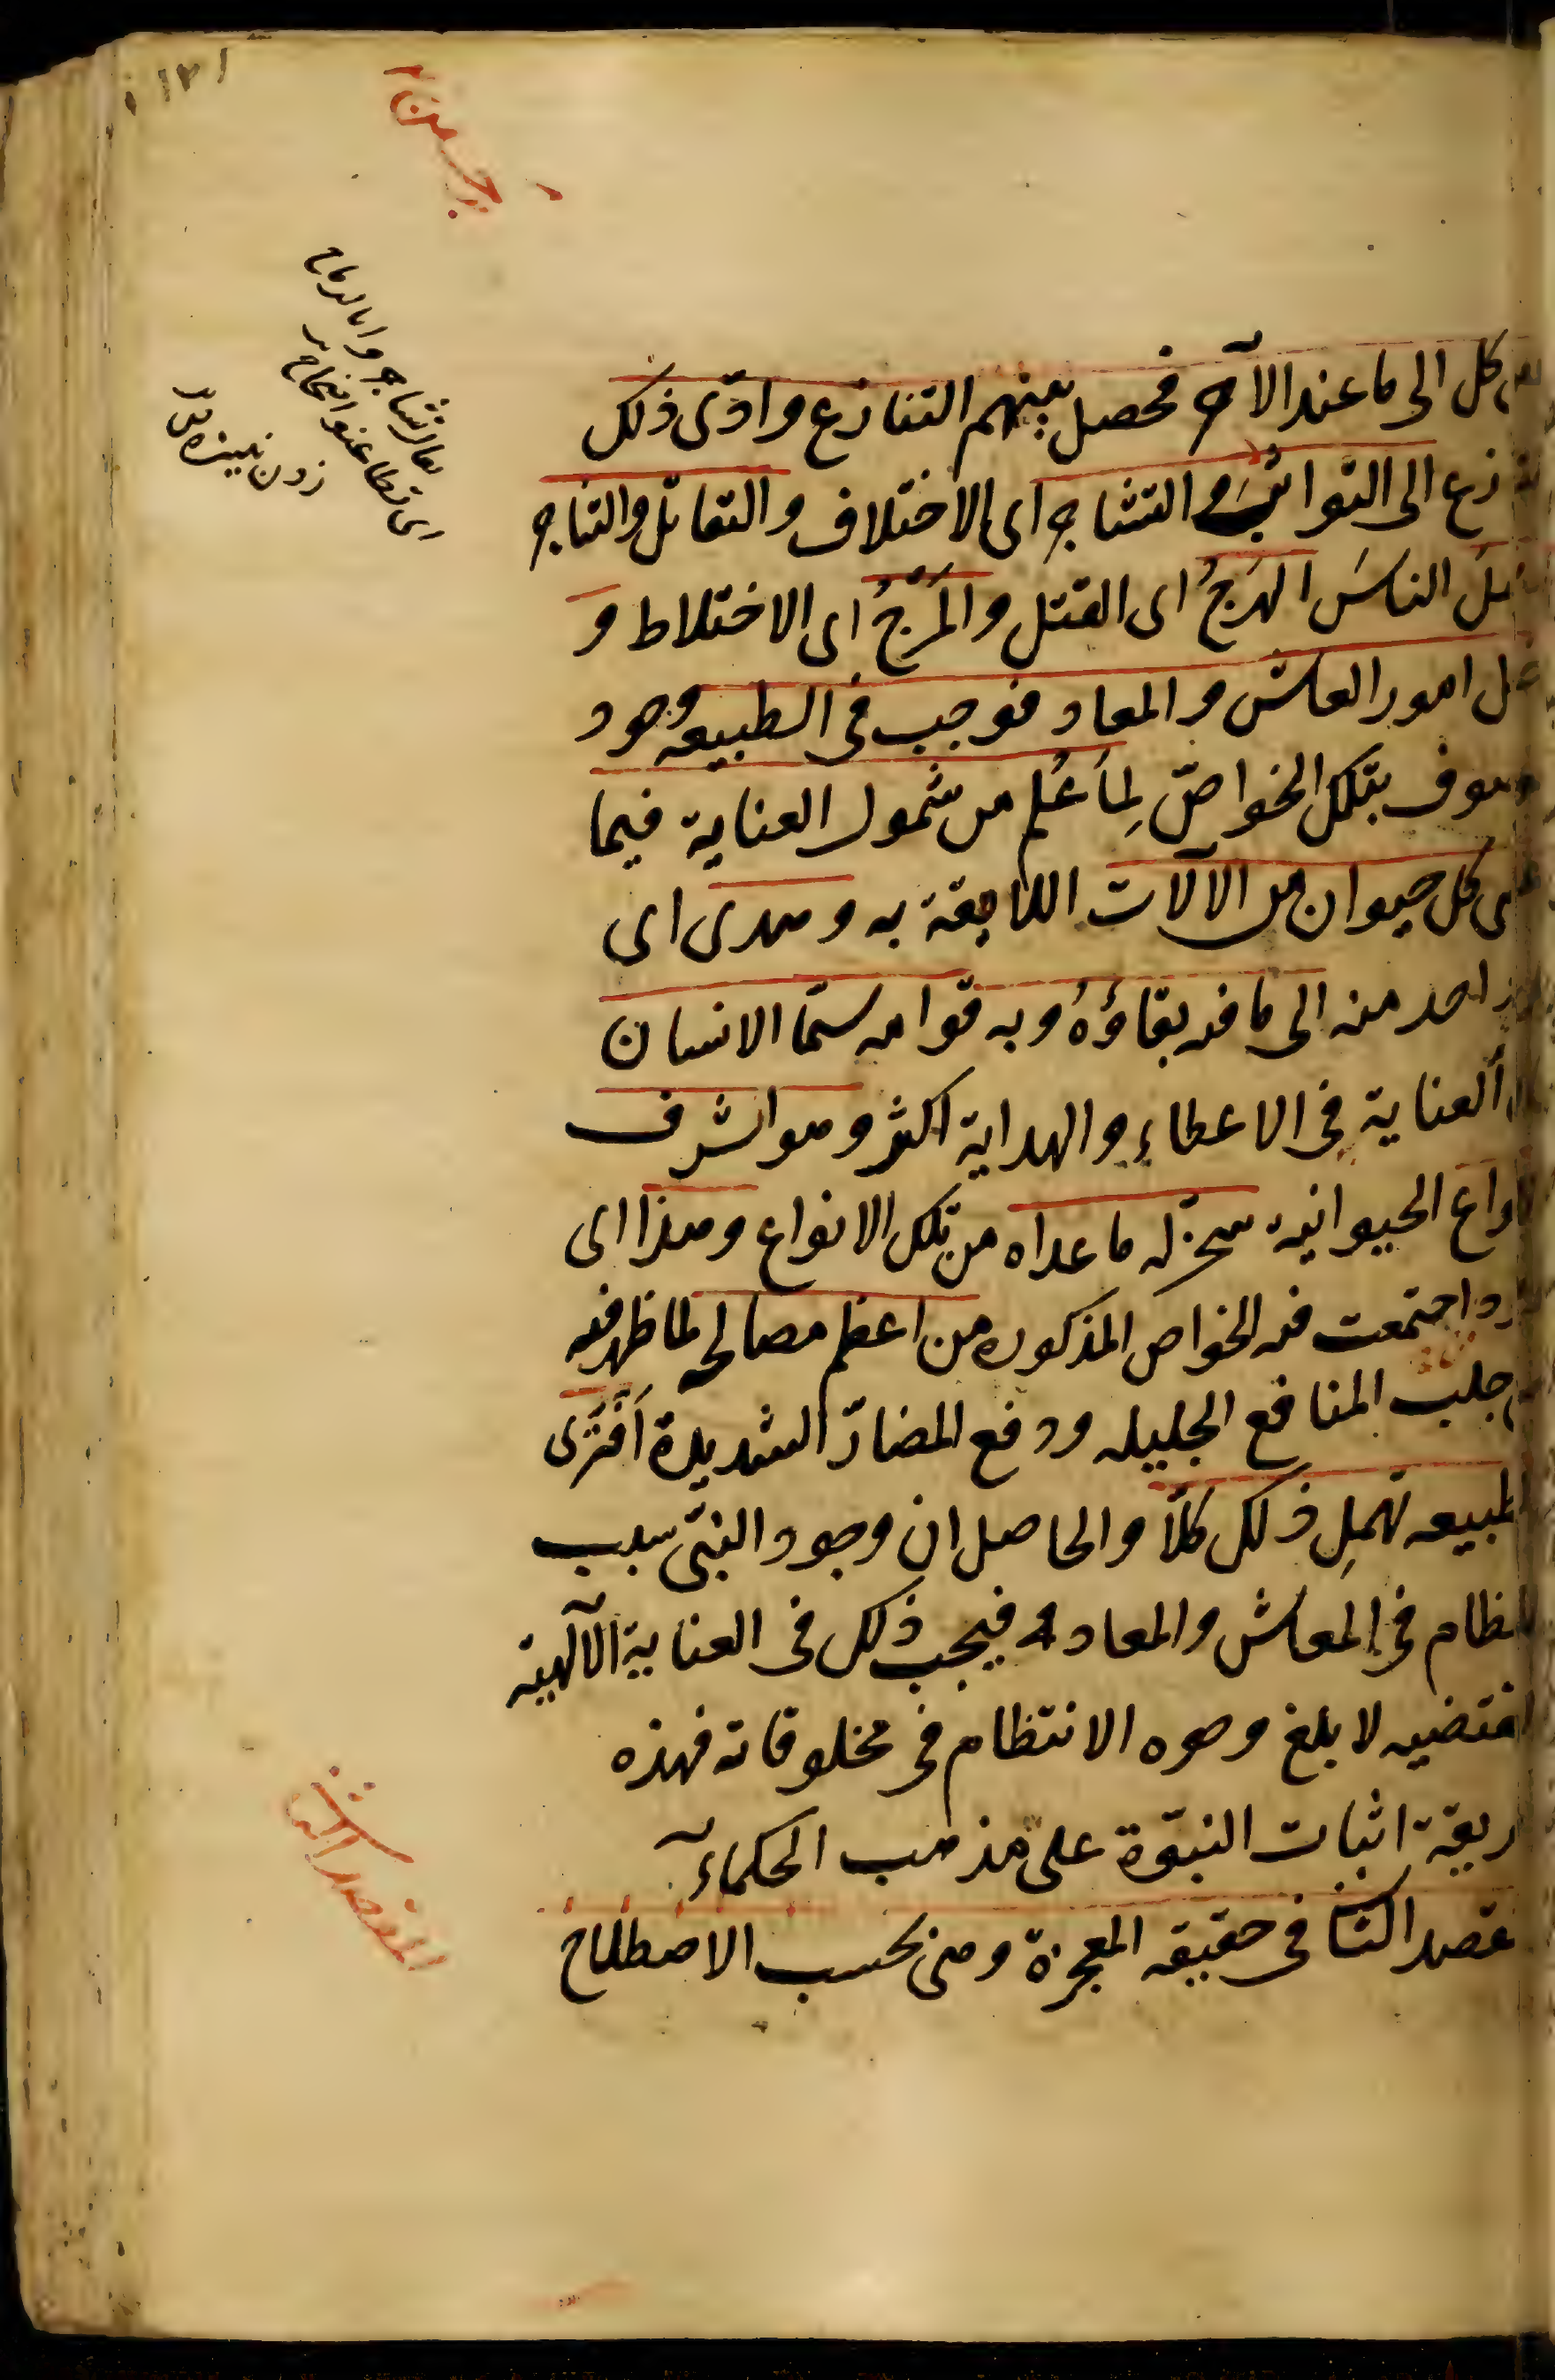 كل الى ما عند الآخر فحصل بينهم التنازع وادّى ذلك
الى التواثب والتشاجر اى الاختلاف والتقاتل والتناجر
الناسَ الهَرجُ اى القتل والمَرْجُ اى الاختلاط و
امور المعاش والمعاد فوجب فى الطبيعه وجود
بتلك الخواصّ لِما عُلم من شمول العناية فيما
كل حيوان من الآلات اللايقة به وهدى اى
منه الى ما فيه بقاؤهُ وبه قوامه سيّما الانسان
العناية فى الاعطاءِ والهداية اكثر وهو اشرف
الحيوانية سخّر له ما عداه من تلك الانواع وهذا اى
اجتمعت فيه الخواص المذكوره من اعظم مصالحه لما ظهر فيه
جلب المنافع الجليله ودفع المضارّ الشديدة أفتَرى
تهمِل ذلك كلّا والحاصل ان وجود النبىّ سبب
فى المعاش والمعاد فيجب ذلك فى العناية الآلهية
لابلغ وجوه الانتظام فى مخلوقاته فهذه
اثبات النبوّة على مذهب الحكمآء
الثا فى حقيقه المعجزة وهى بحسب الاصطلاح
تشاجروا بالرماح
اى تطاعنوا
زدن
المقصد الثا